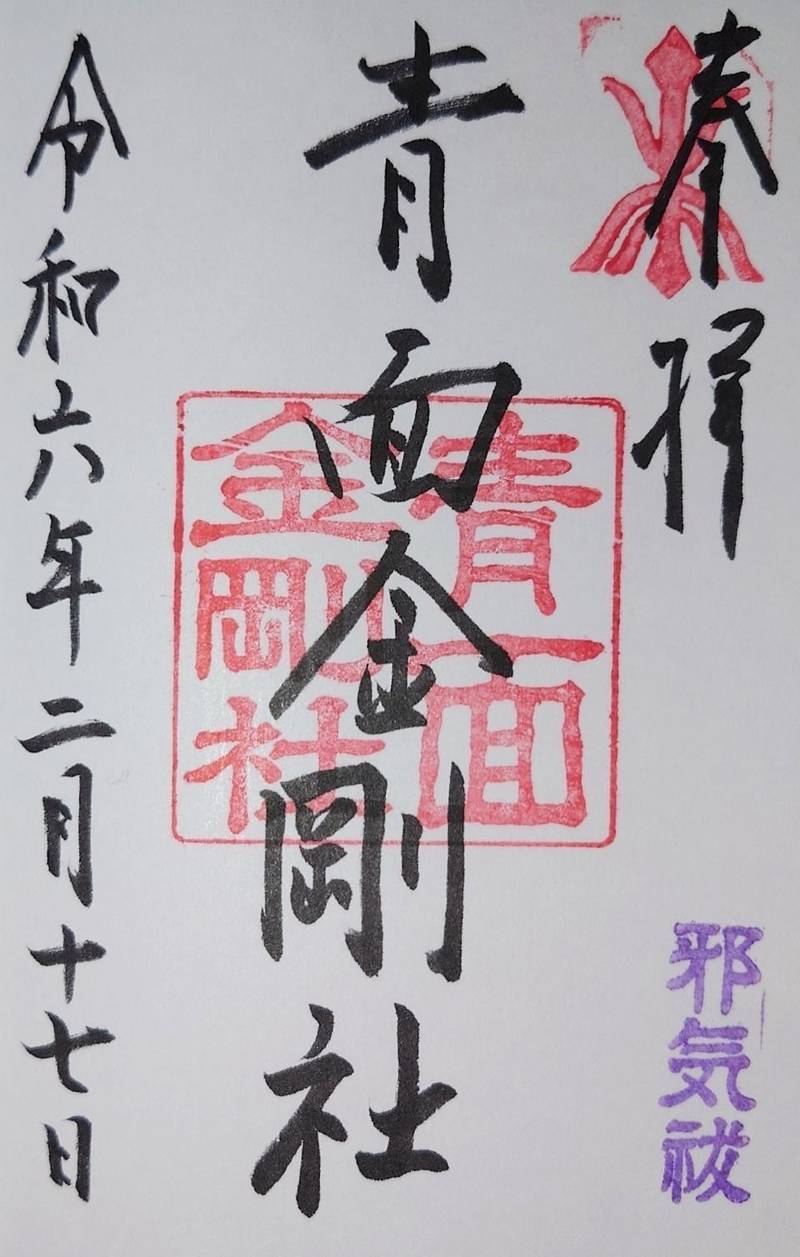 奉拝
邪気祓
青面金剛社
青面
金剛社
令和六年二月十七日